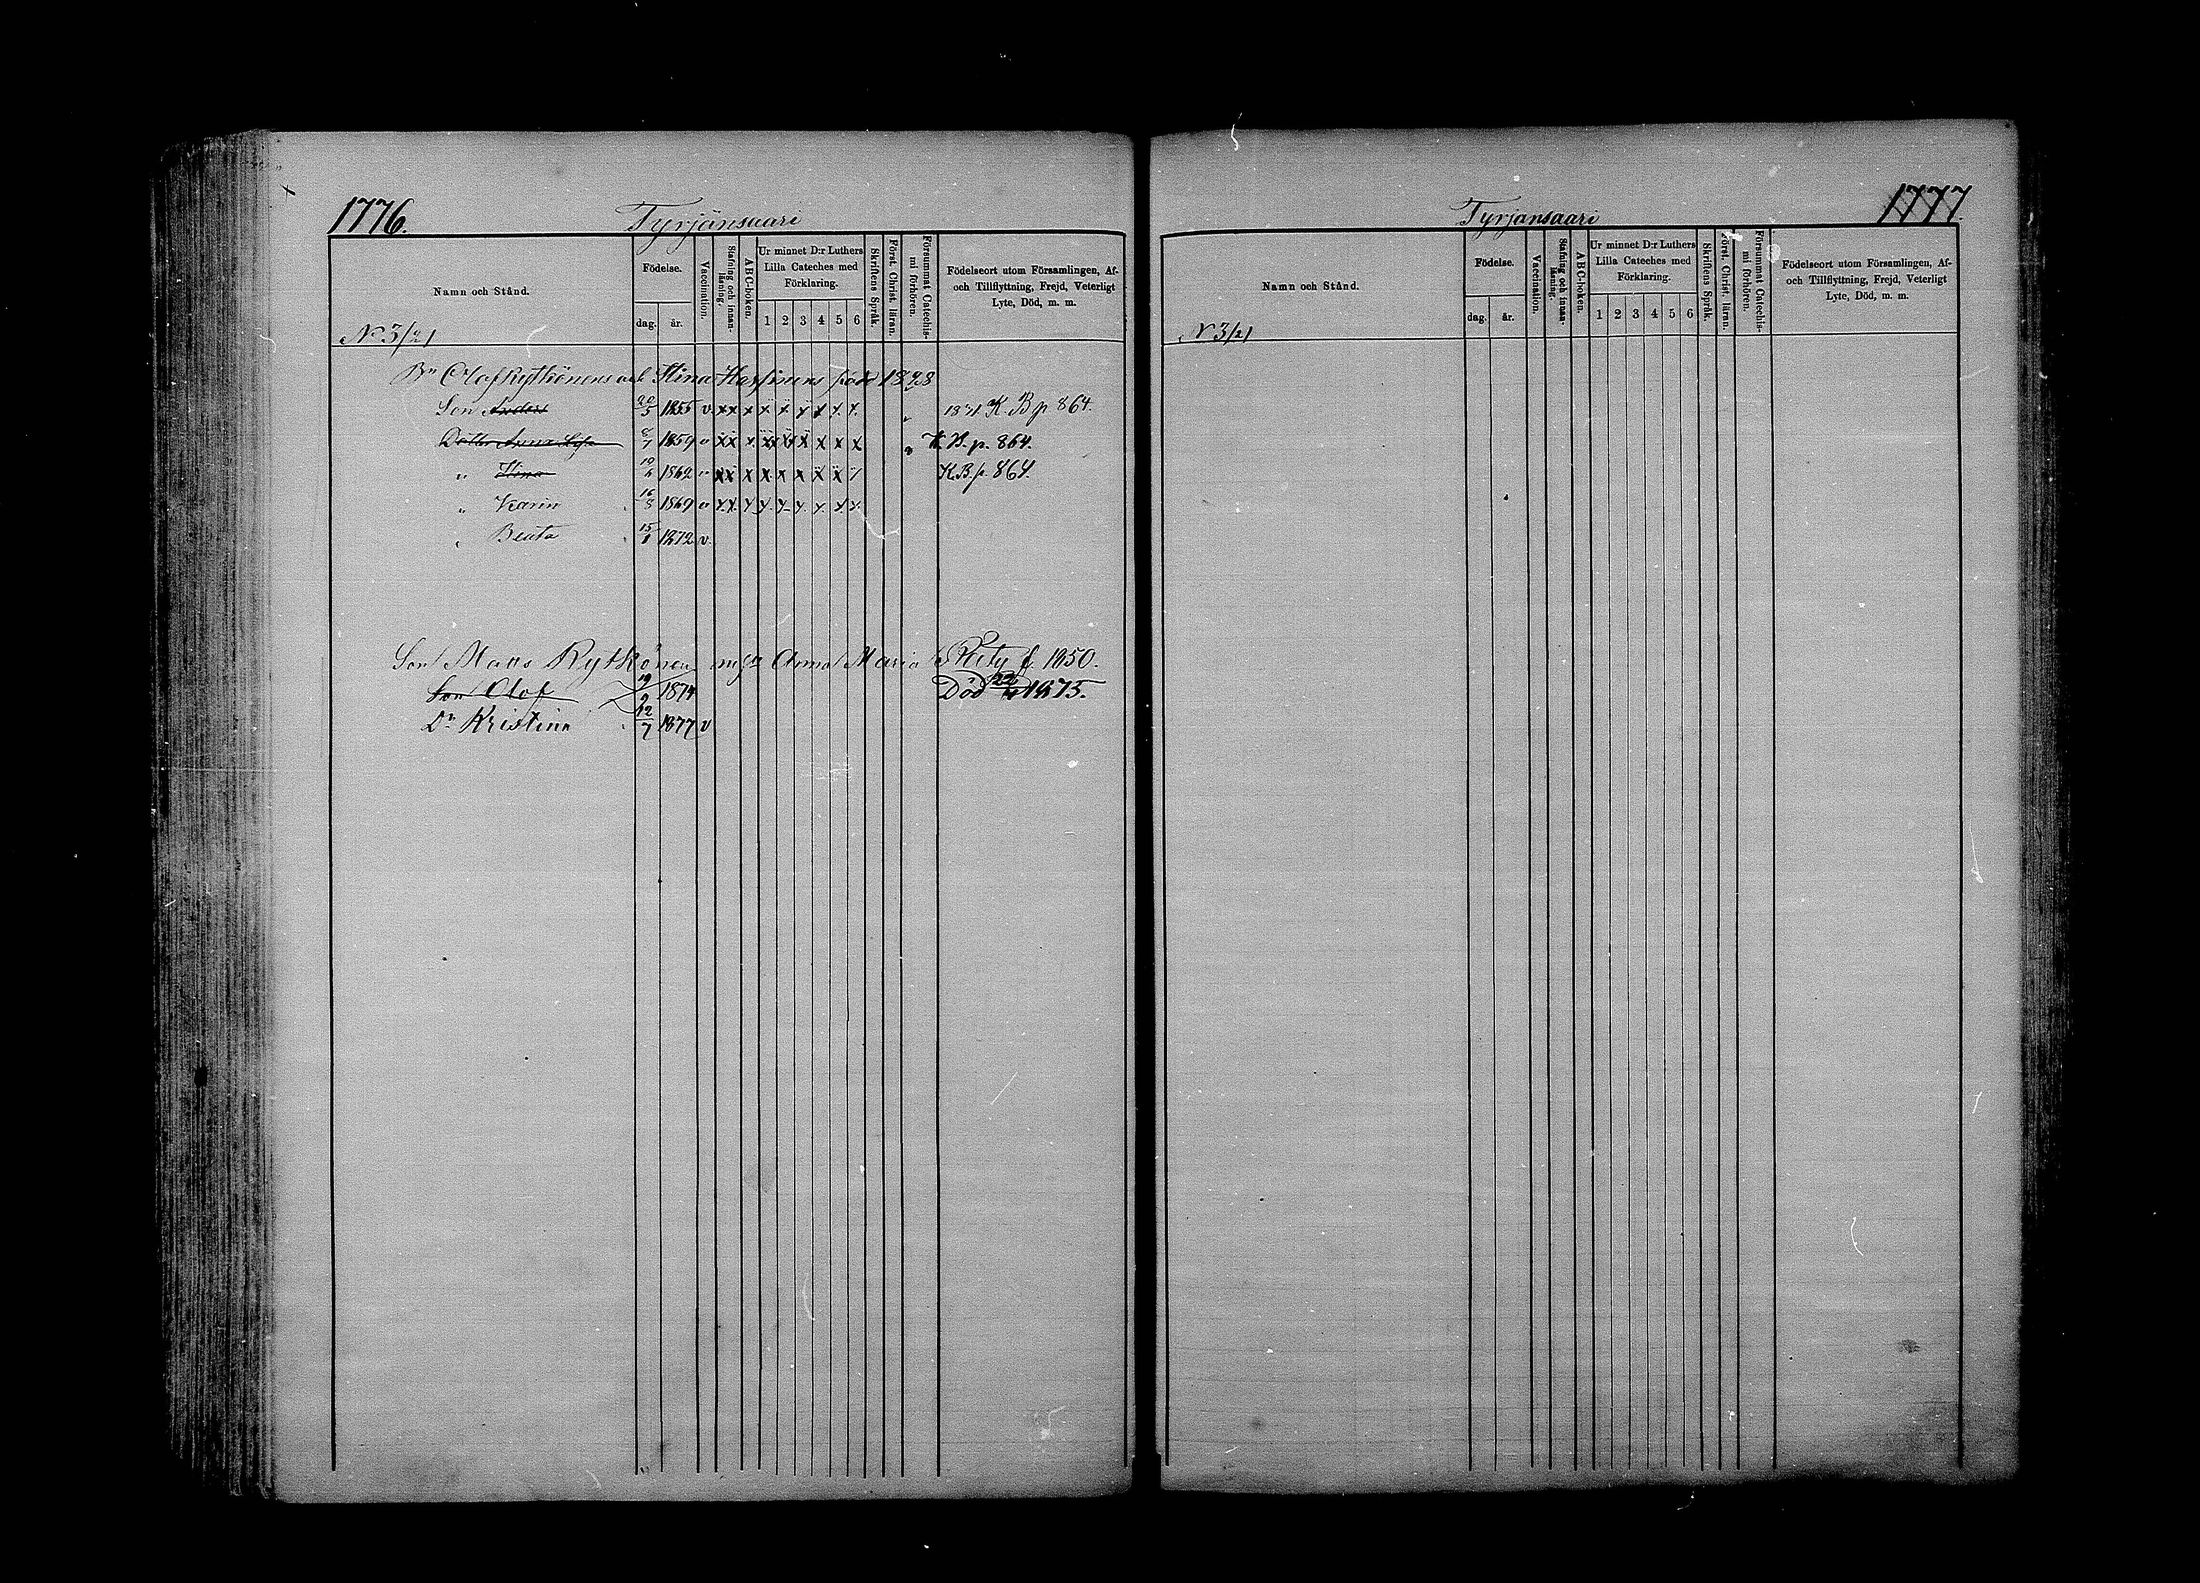 1776.
Tyrjänsaari
Namn och Stånd.
Födelse.
dag.
år.
Vaccination.
Stafning och innan-läsning.
ABC-boken.
Ur minnet D:r Luthers
Lilla Cateches med
Förklaring.
1 2 3 4 5 6
Skriftens Språk.
Först. Christ. läran.
Försummat Catechis-
mi förhören.
Födelseort utom Församlingen, Af-
och Tillflyttning, Frejd, Veterligt
Lyte, Död, m. m.
N 3/2/
Bn Olof Rytkönens och Stina Hassinens
Son Anders 20/5 1855 v x x x x x x x x x K. B p 864.
Dotter Anna Lisa 8/7 1859 v x x x x x x x x x K. B. p. 864.
" Stina 1862 v x x x x x x x x x K. B. p 864.
" Karin 16/8 1869 v x x x x x x x x x
" Beata 15/1 1872 v.
Son Mans Rytkönen m/ga Anna Maria f. 1850.
Son Olof 19/9 1874 Död 1875.
Dr Kristina 12/7 1877 v
1777.
Tyrjansaari
Namn och Stånd.
Födelse.
dag.
år.
Vaccination.
Stafning och innan-läsning.
ABC-boken.
Ur minnet D:r Luthers
Lilla Cateches med
Förklaring.
1 2 3 4 5 6
Skriftens Språk.
Först. Christ. läran.
Försummat Catechis-
mi förhören.
Födelseort utom Församlingen, Af-
och Tillflyttning, Frejd, Veterligt
Lyte, Död, m. m.
N 3/2/